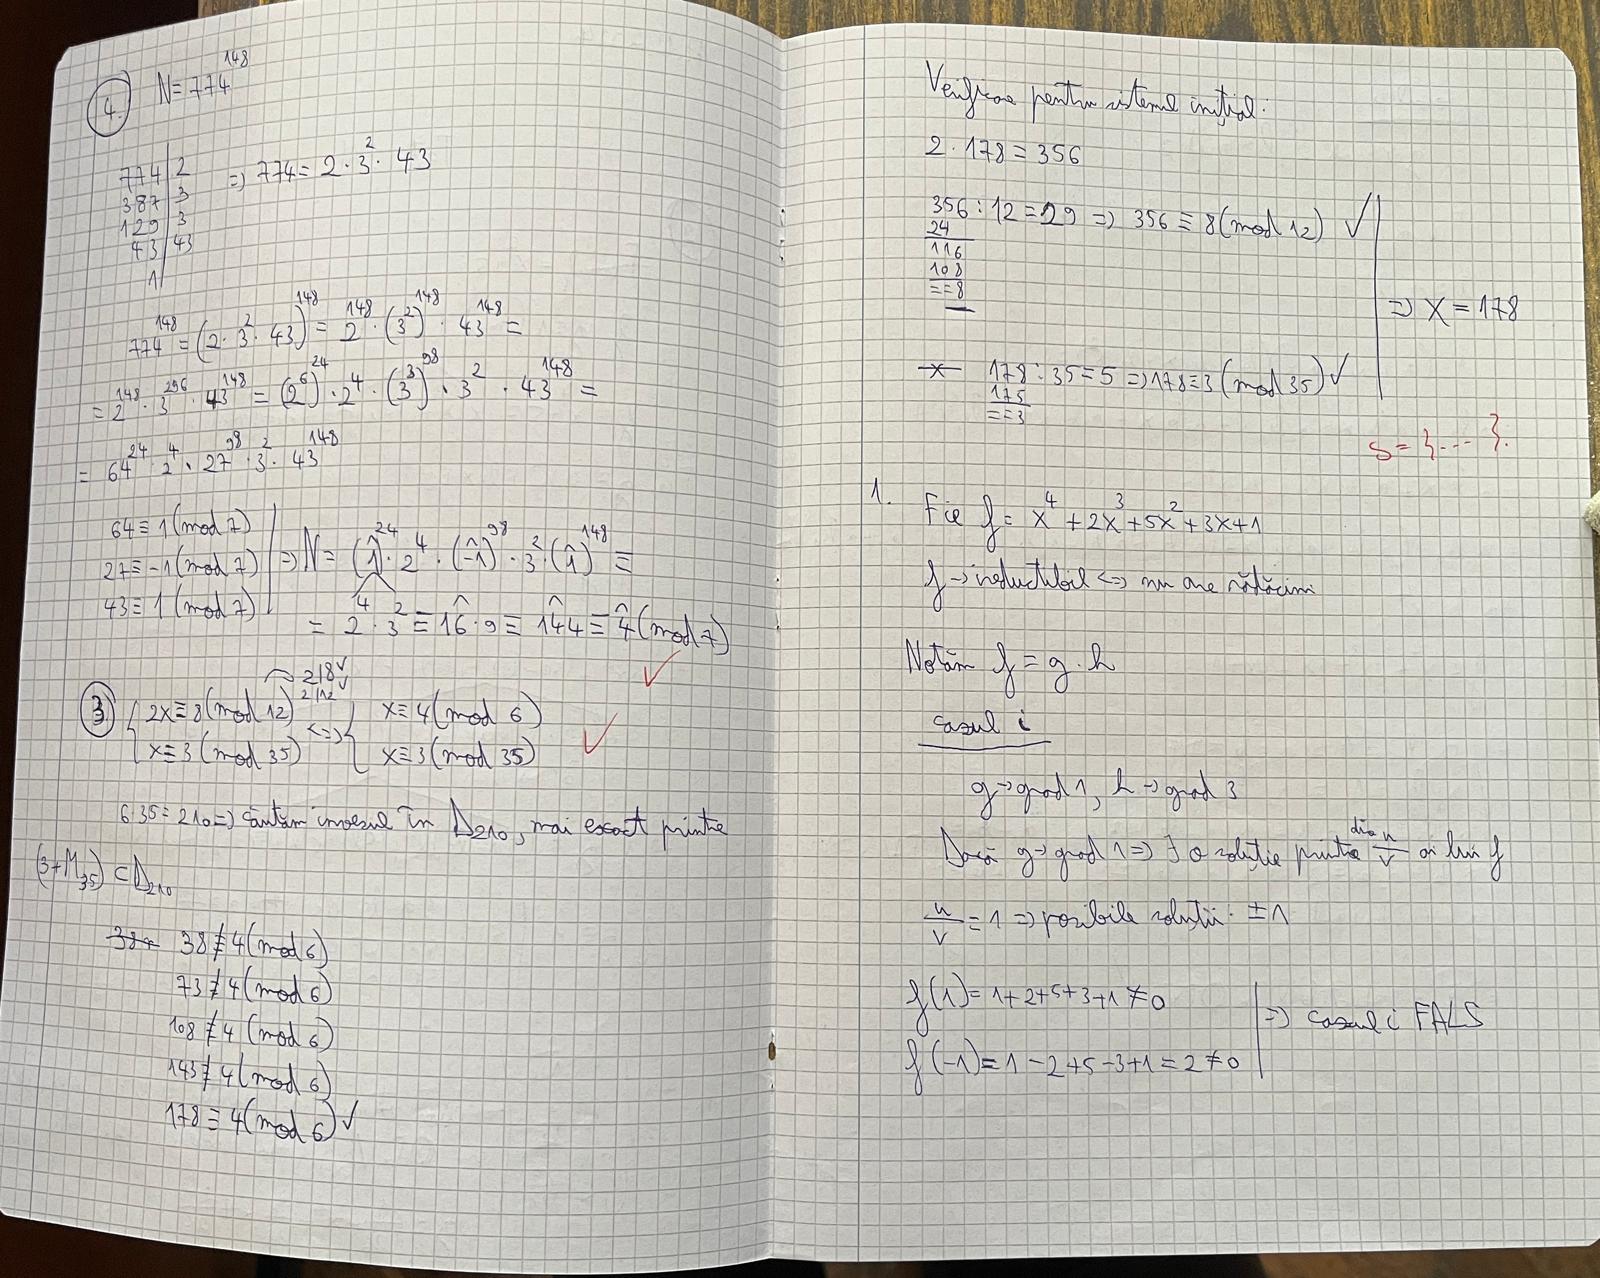 4. N = 774^148
774 | 2 => 774 = 2 · 3^2 · 43
387 | 3
129 | 3
43 | 43
1
774^148 = (2 · 3^2 · 43)^148 = 2^148 · (3^2)^148 · 43^148 =
= 2^148 · 3^296 · 43^148 = (2^6)^24 · 2^4 · (3^3)^98 · 3^2 · 43^148 =
= 64^24 · 2^4 · 27^98 · 3^2 · 43^148
64 ≡ 1 (mod 7)
27 ≡ -1 (mod 7) => N = (1̂)^24 · 2^4 · (-1̂)^98 · 3^2 · (1̂)^148 ≡
43 ≡ 1 (mod 7)
= 2^4 · 3^2 ≡ 16̂ · 9 ≡ 144̂ ≡ 4̂ (mod 7)
2|8 ✓
2|12 ✓
3. { 2x ≡ 8 (mod 12) <=> { x ≡ 4 (mod 6)
x ≡ 3 (mod 35) x ≡ 3 (mod 35)
6 · 35 = 210 => căutăm inversul în D210, mai exact printre
(3+M35) ⊂ D210
38 ≢ 4 (mod 6)
73 ≢ 4 (mod 6)
108 ≢ 4 (mod 6)
143 ≢ 4 (mod 6)
178 ≡ 4 (mod 6) ✓
Verificare pentru sistemul inițial:
2 · 178 = 356
356 : 12 = 29 => 356 ≡ 8 (mod 12) ✓
24
116
108
==8
=> x = 178
178 : 35 = 5 => 178 ≡ 3 (mod 35) ✓
175
==3
S = {--- }.
1. Fie f = x^4 + 2x^3 + 5x^2 + 3x + 1
f → ireductibil <=> nu are rădăcini
Notăm f = g · h
cazul i
g → grad 1, h → grad 3
Dacă g → grad 1 => ∃ o soluție printre div u/v ai lui f
u/v = 1 => posibile soluții: ±1
f(1) = 1+2+5+3+1 ≠ 0
=> cazul i FALS
f(-1) = 1-2+5-3+1 = 2 ≠ 0